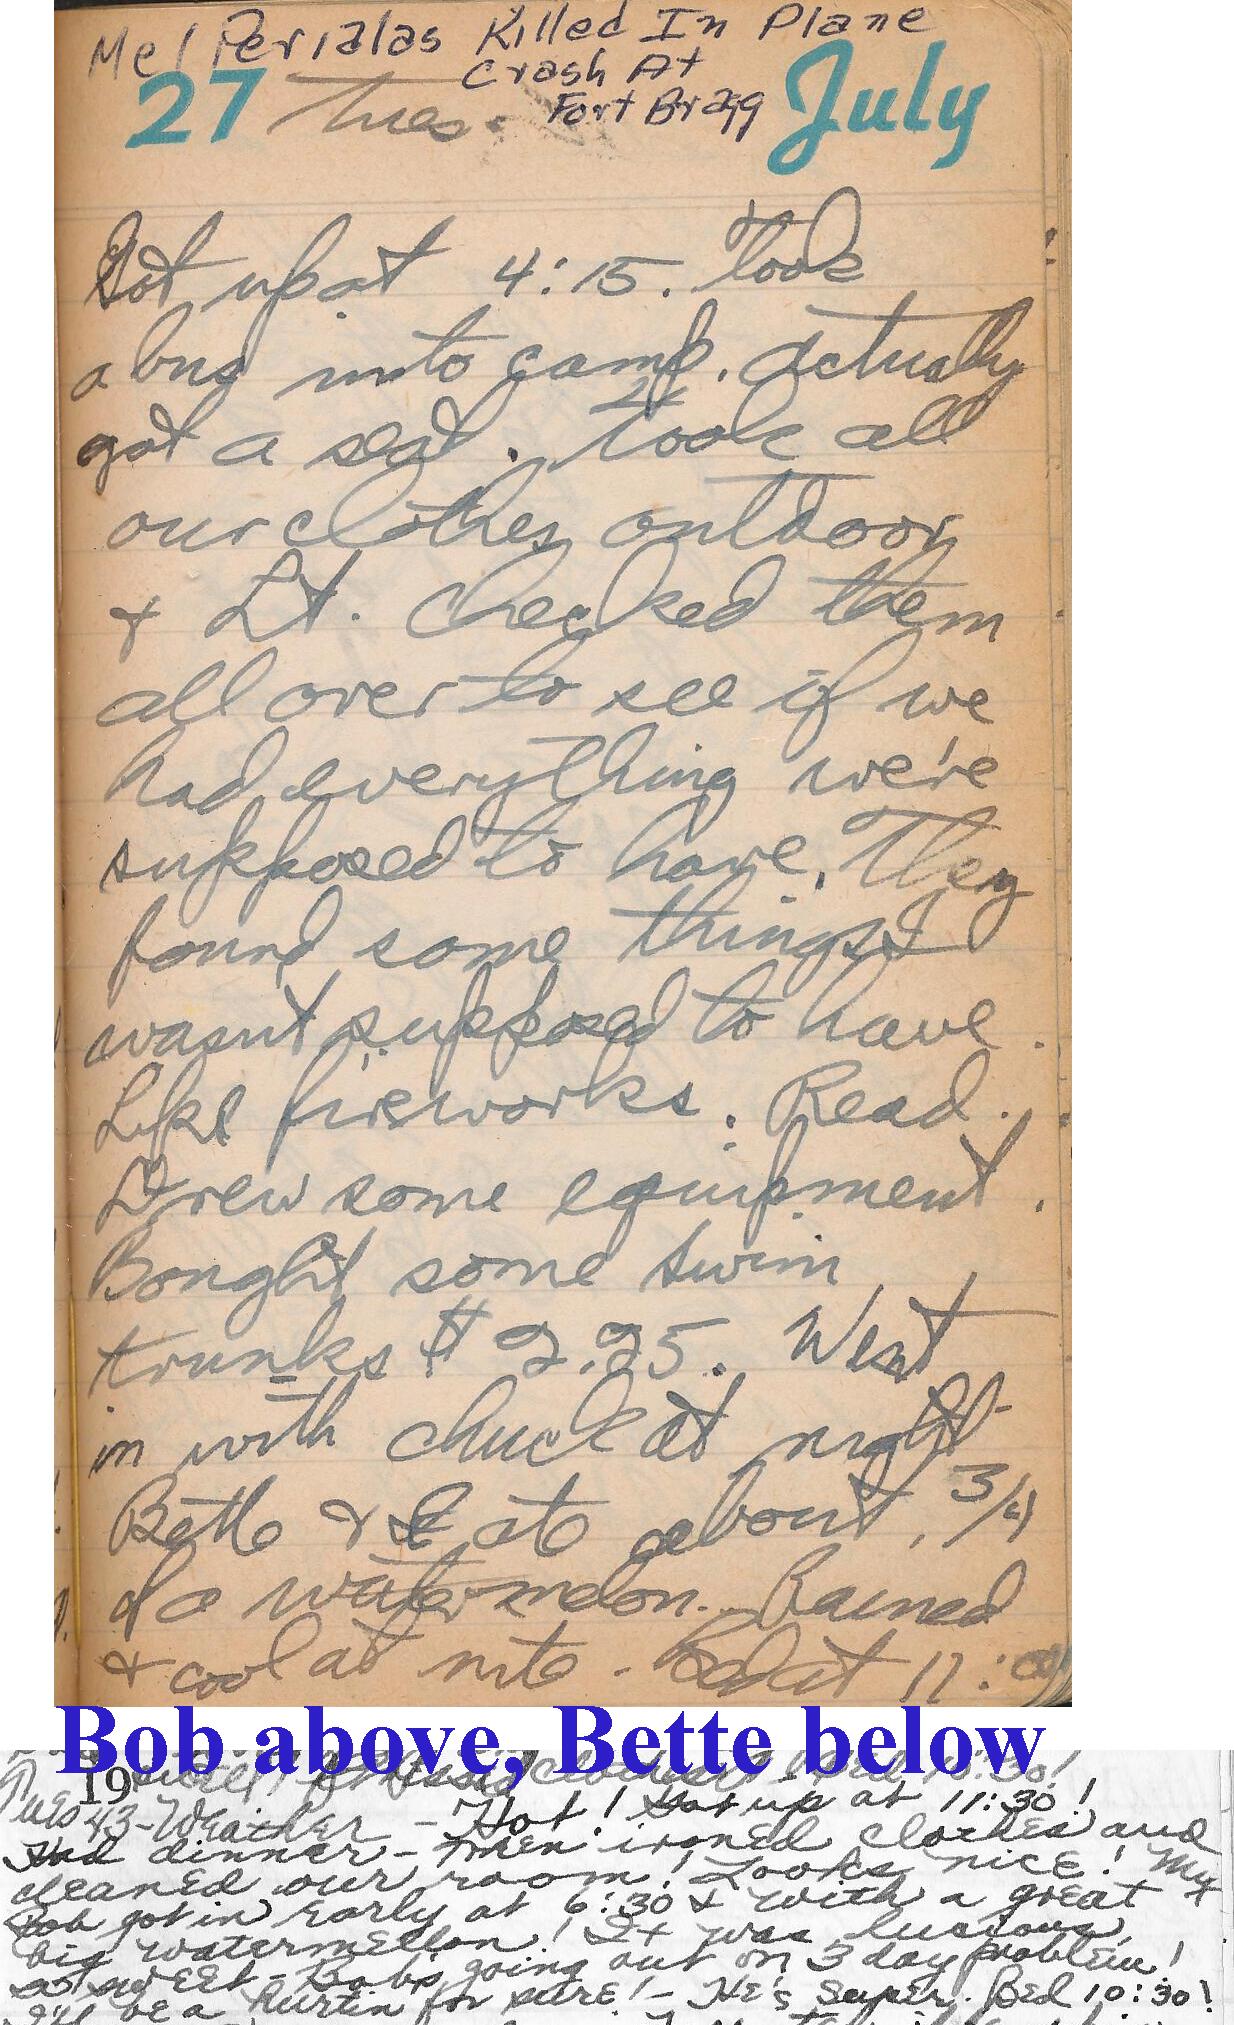 Mel Perialas Killed In Plane
Crash At
Fort Bragg
27 Tues. July
Got up at 4:15. Took
a bus into camp. Actually
got a seat. Took all
our clothes outdoors
& Lt. checked them
all over to see if we
had everything we're
supposed to have. They
found some things I
wasn't supposed to have.
Like fireworks. Read.
Drew some equipment.
Bought some swim
trunks $2.25. Went
in with Chuck at night
Bette & I ate about 3/4
of a watermelon. Rained
& cool at nite. Bed at 11:00
Bob above, Bette below
19 clothes! Bed 10:30!
Tues 43 - Weather - Hot! Got up at 11:30!
Had dinner - then ironed clothes and
cleaned our room! Looks nice! My
Bob got in early at 6:30 & with a great
big watermellon! It was lusious,
so sweet - Bob's going out on 3 day problem!
I'll be a hurtin for sure! - He's super. Bed 10:30!